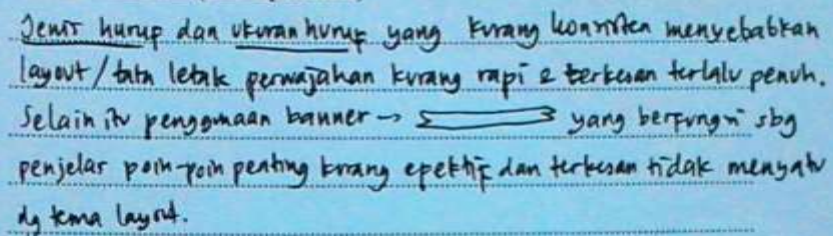 Jenis hurup dan ukuran hurup yang kurang konsisten menyebabkan
layout/tata letak perwajahan kurang rapi & terkesan terlalu penuh.
Selain itu penggunaan banner → yang berpungsi sbg
penjelas poin-poin penting kurang epektip dan terkesan tidak menyatu
dg tema layout.